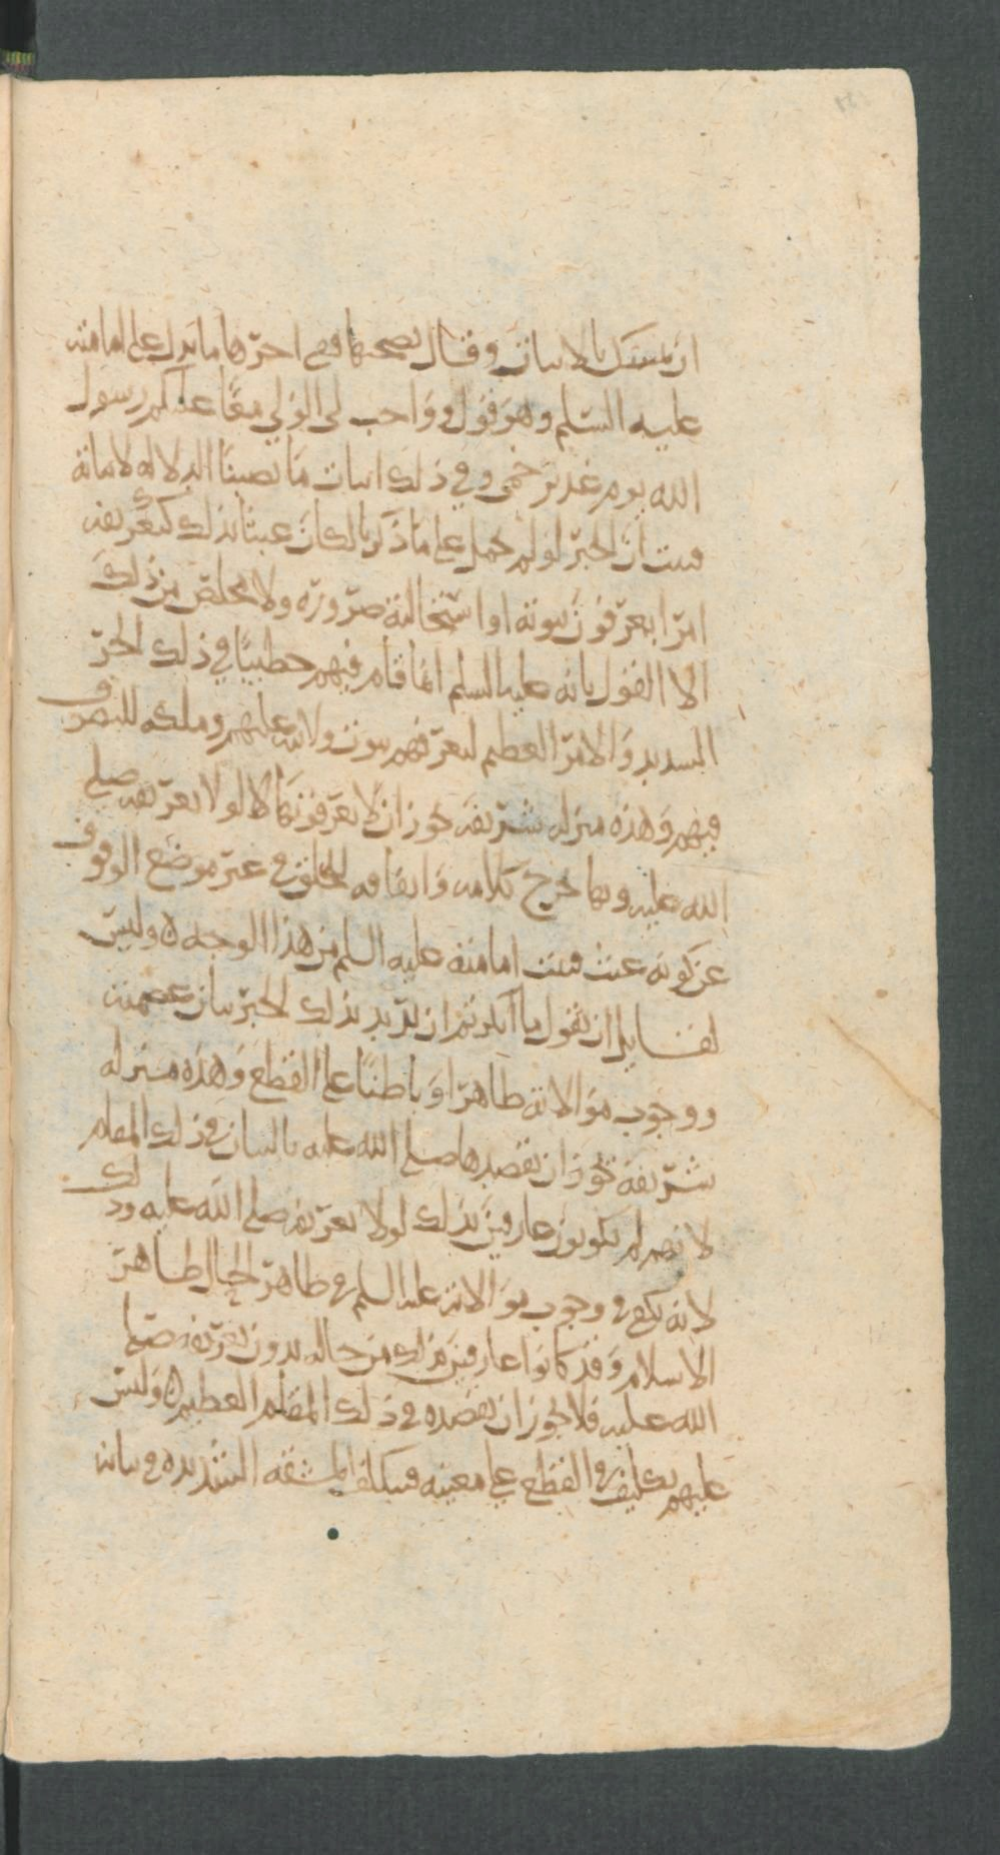 ان نستدل بالابيات وقال بصحتها ففي احرها ما يدل على امامته
عليه السلم وهو قوله وواجب لي الولي معا عليكم رسول
الله يوم غدير خمي وفي ذلك اثبات ما نصبنا الدلاله لاثباته
فثبت ان الخبر لو لم يحمل على ما ذكرنا لكان عبثا بذلك كتعريفه
امرا يعرفون ثبوته او استحالته ضروره ولا مخلص من ذلك
الا القول بانه عليه السلم انما قام فيهم خطيبا في ذلك الحر
السديد والامر العظيم ليعرفهم ثبوت ولايته عليهم وملكه للتصرف
فيهم وهذه منزله شريفه يجوز ان لا يعرفونها لولا تعريفه صلى
الله عليه وبها خرج كلامه وايقافه للخلق في غير موضع الوقوف
عن كونه عبث فثبت امامته عليه السلم من هذا الوجه ه وليس
لقايل ان يقول ما انكرتم ان يريد بذلك الخبر بيان عصمته
ووجوب موالاته ظاهرا وباطنا على القطع وهذه منزله
شريفه يجوز ان يقصدها صلى الله عليه بالبيان في ذلك المقام
لانهم لم يكونوا عارفين بذلك لولا تعريفه صلى الله عليه وذلك
لانه يكفي في وجوب موالاته عليه السلم في ظاهر الحال ظاهر
الاسلام وقد كانوا عارفين بذلك من حاله بدون تعريفه صلى
الله عليه فلا يجوز ان يقصده في ذلك المقام العظيم ه وليس
عليهم تكليف في القطع على مغيبه فيتكلف المشقه الشديده في بيانه